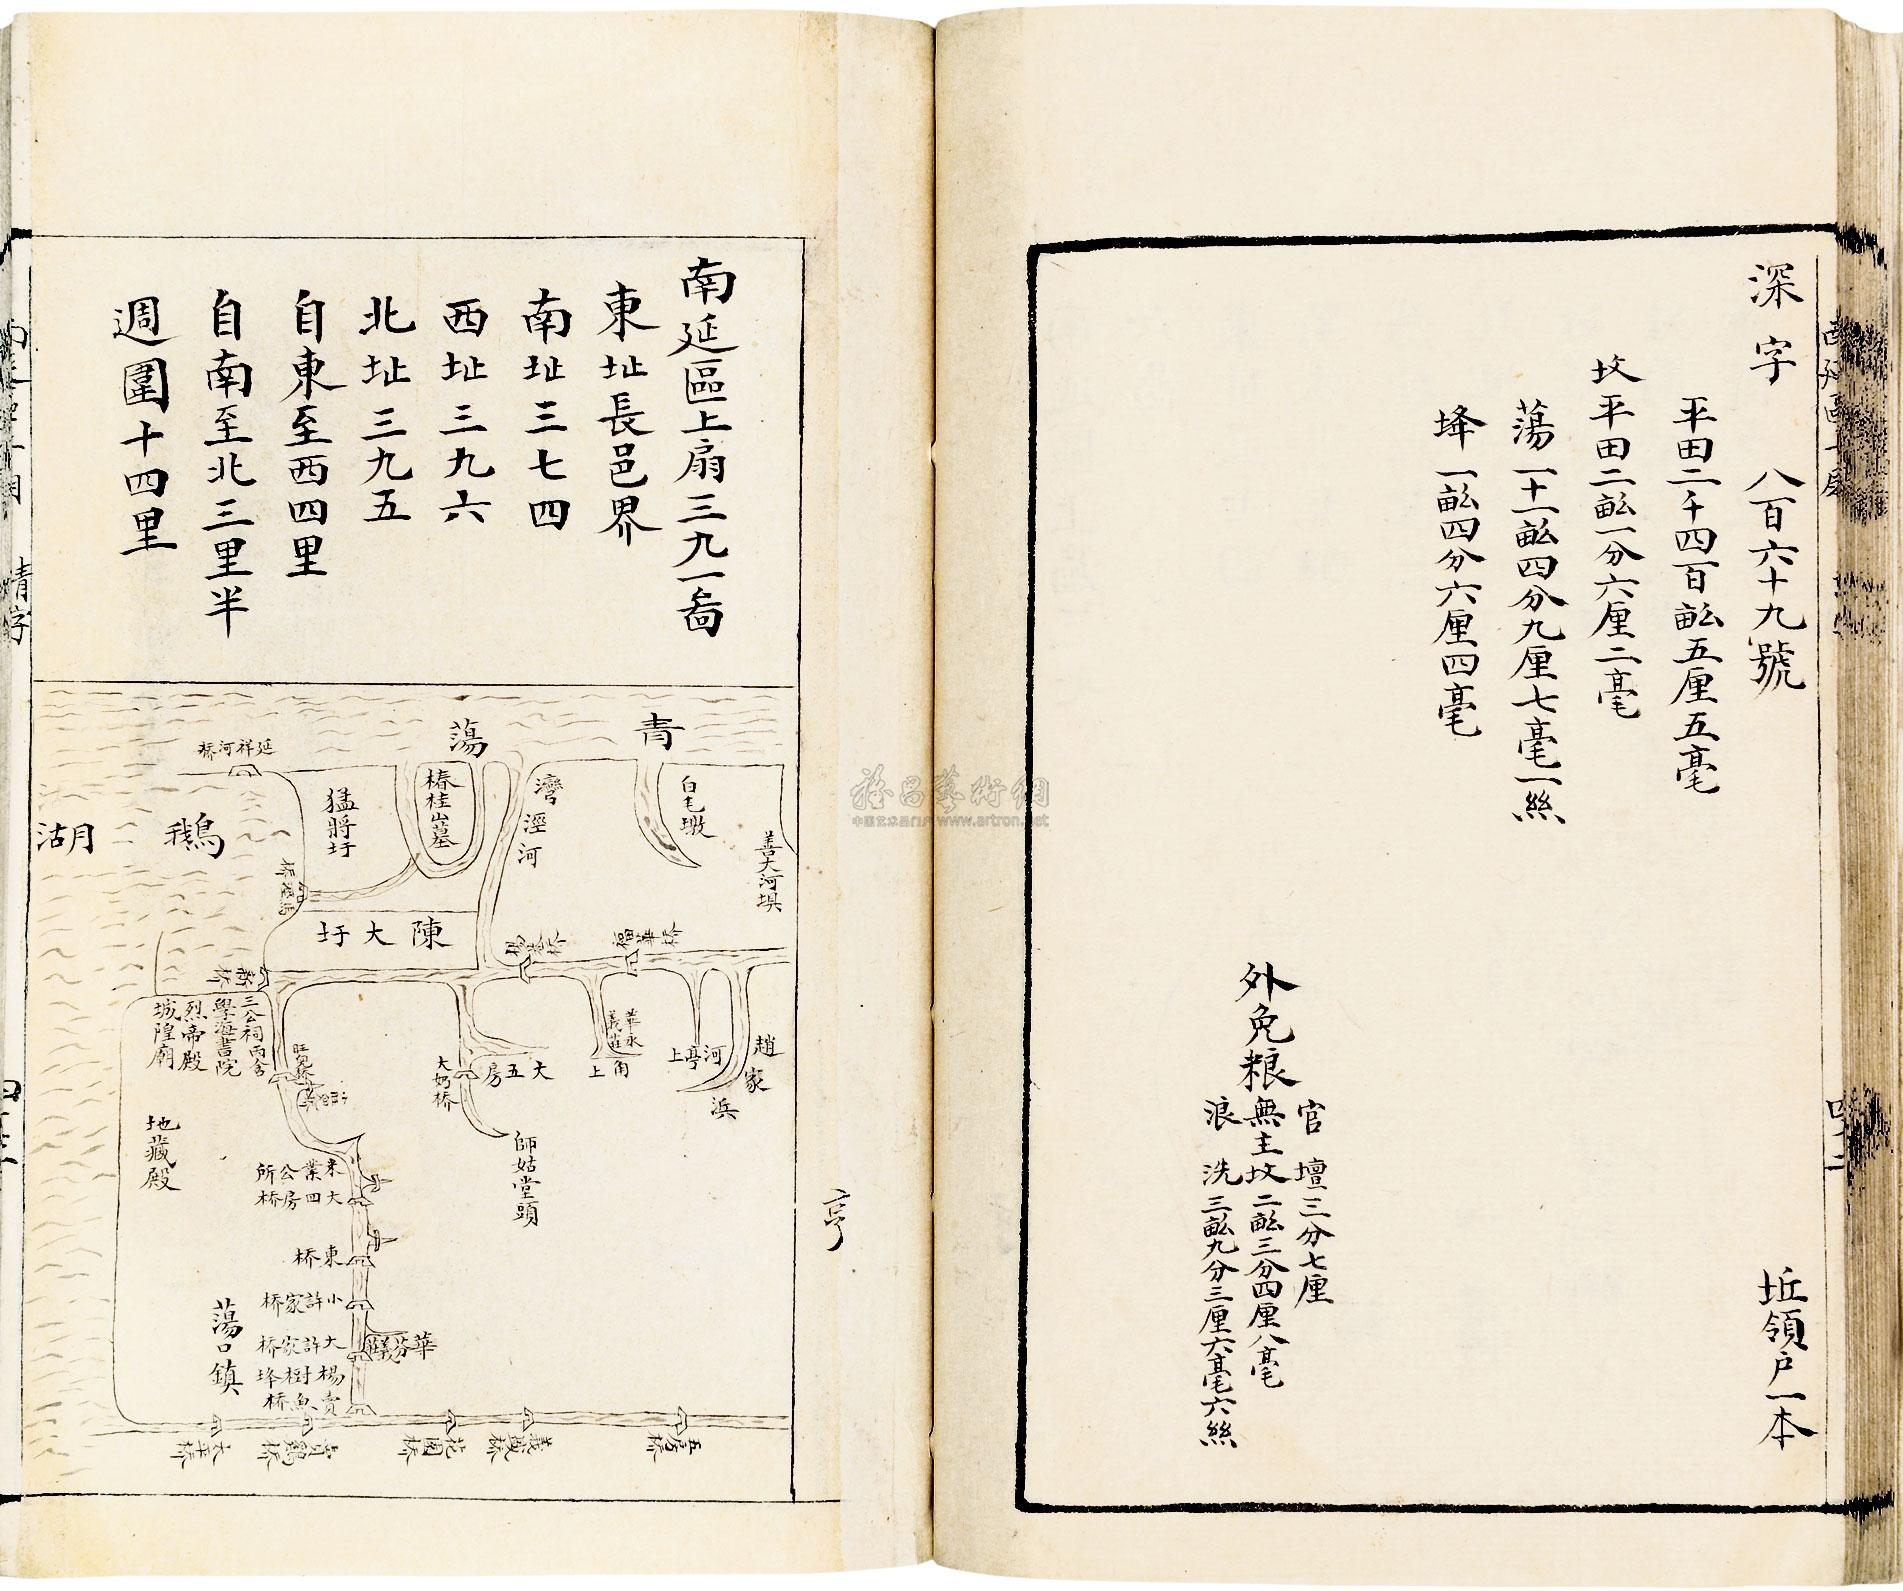 深字 八百六十九號 坵領户一本
平田二千四百畆五厘五毫
坟平田二畆一分六厘二毫
蕩一十一畆四分九厘七毫一絲
垟一畆四分六厘四毫
外免粮
官壇三分七厘
無主坟二畆三分四厘八毫
浪洗三畆九分三厘六毫六絲
亨
南延區上扇三九一啚
東址長邑界
南址三七四
西址三九六
北址三九五
自東至西四里
自南至北三里半
週圍十四里
青
蕩
鵝
湖
延祥河桥
白毛墩
善大河埧
灣涇河
椿桂山墓
猛將圩
陳大圩
新桥
趙家浜
河亭上
華永義莊
角上
大五房
大奶桥
師姑堂頭
三公祠丙舍
學海書院
烈帝殿
城隍廟
地藏殿
大四房桥
東桥
小許家桥
大許家桥
楊樹垟
賣魚桥
華芬義莊
蕩口鎮
五房桥
義盛桥
花園桥
太平桥
中国艺术品门户 www.artron.net